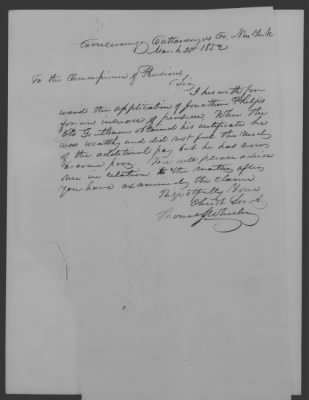 Conewango Cattaraugus Co. New York
March 30th 1852
To the Commissioner of Pensions
Sir
I herewith for
ward the application of Jonathan Phelps
for an increase of pension. When the
Old Gentleman obtained his certificate he
was wealthy and did not feel the need
of the additional pay but he has now
become poor. You will please advise
me in relation to the matter after
you have examined the claim
Respectfully Yours
Thomas J Wheeler